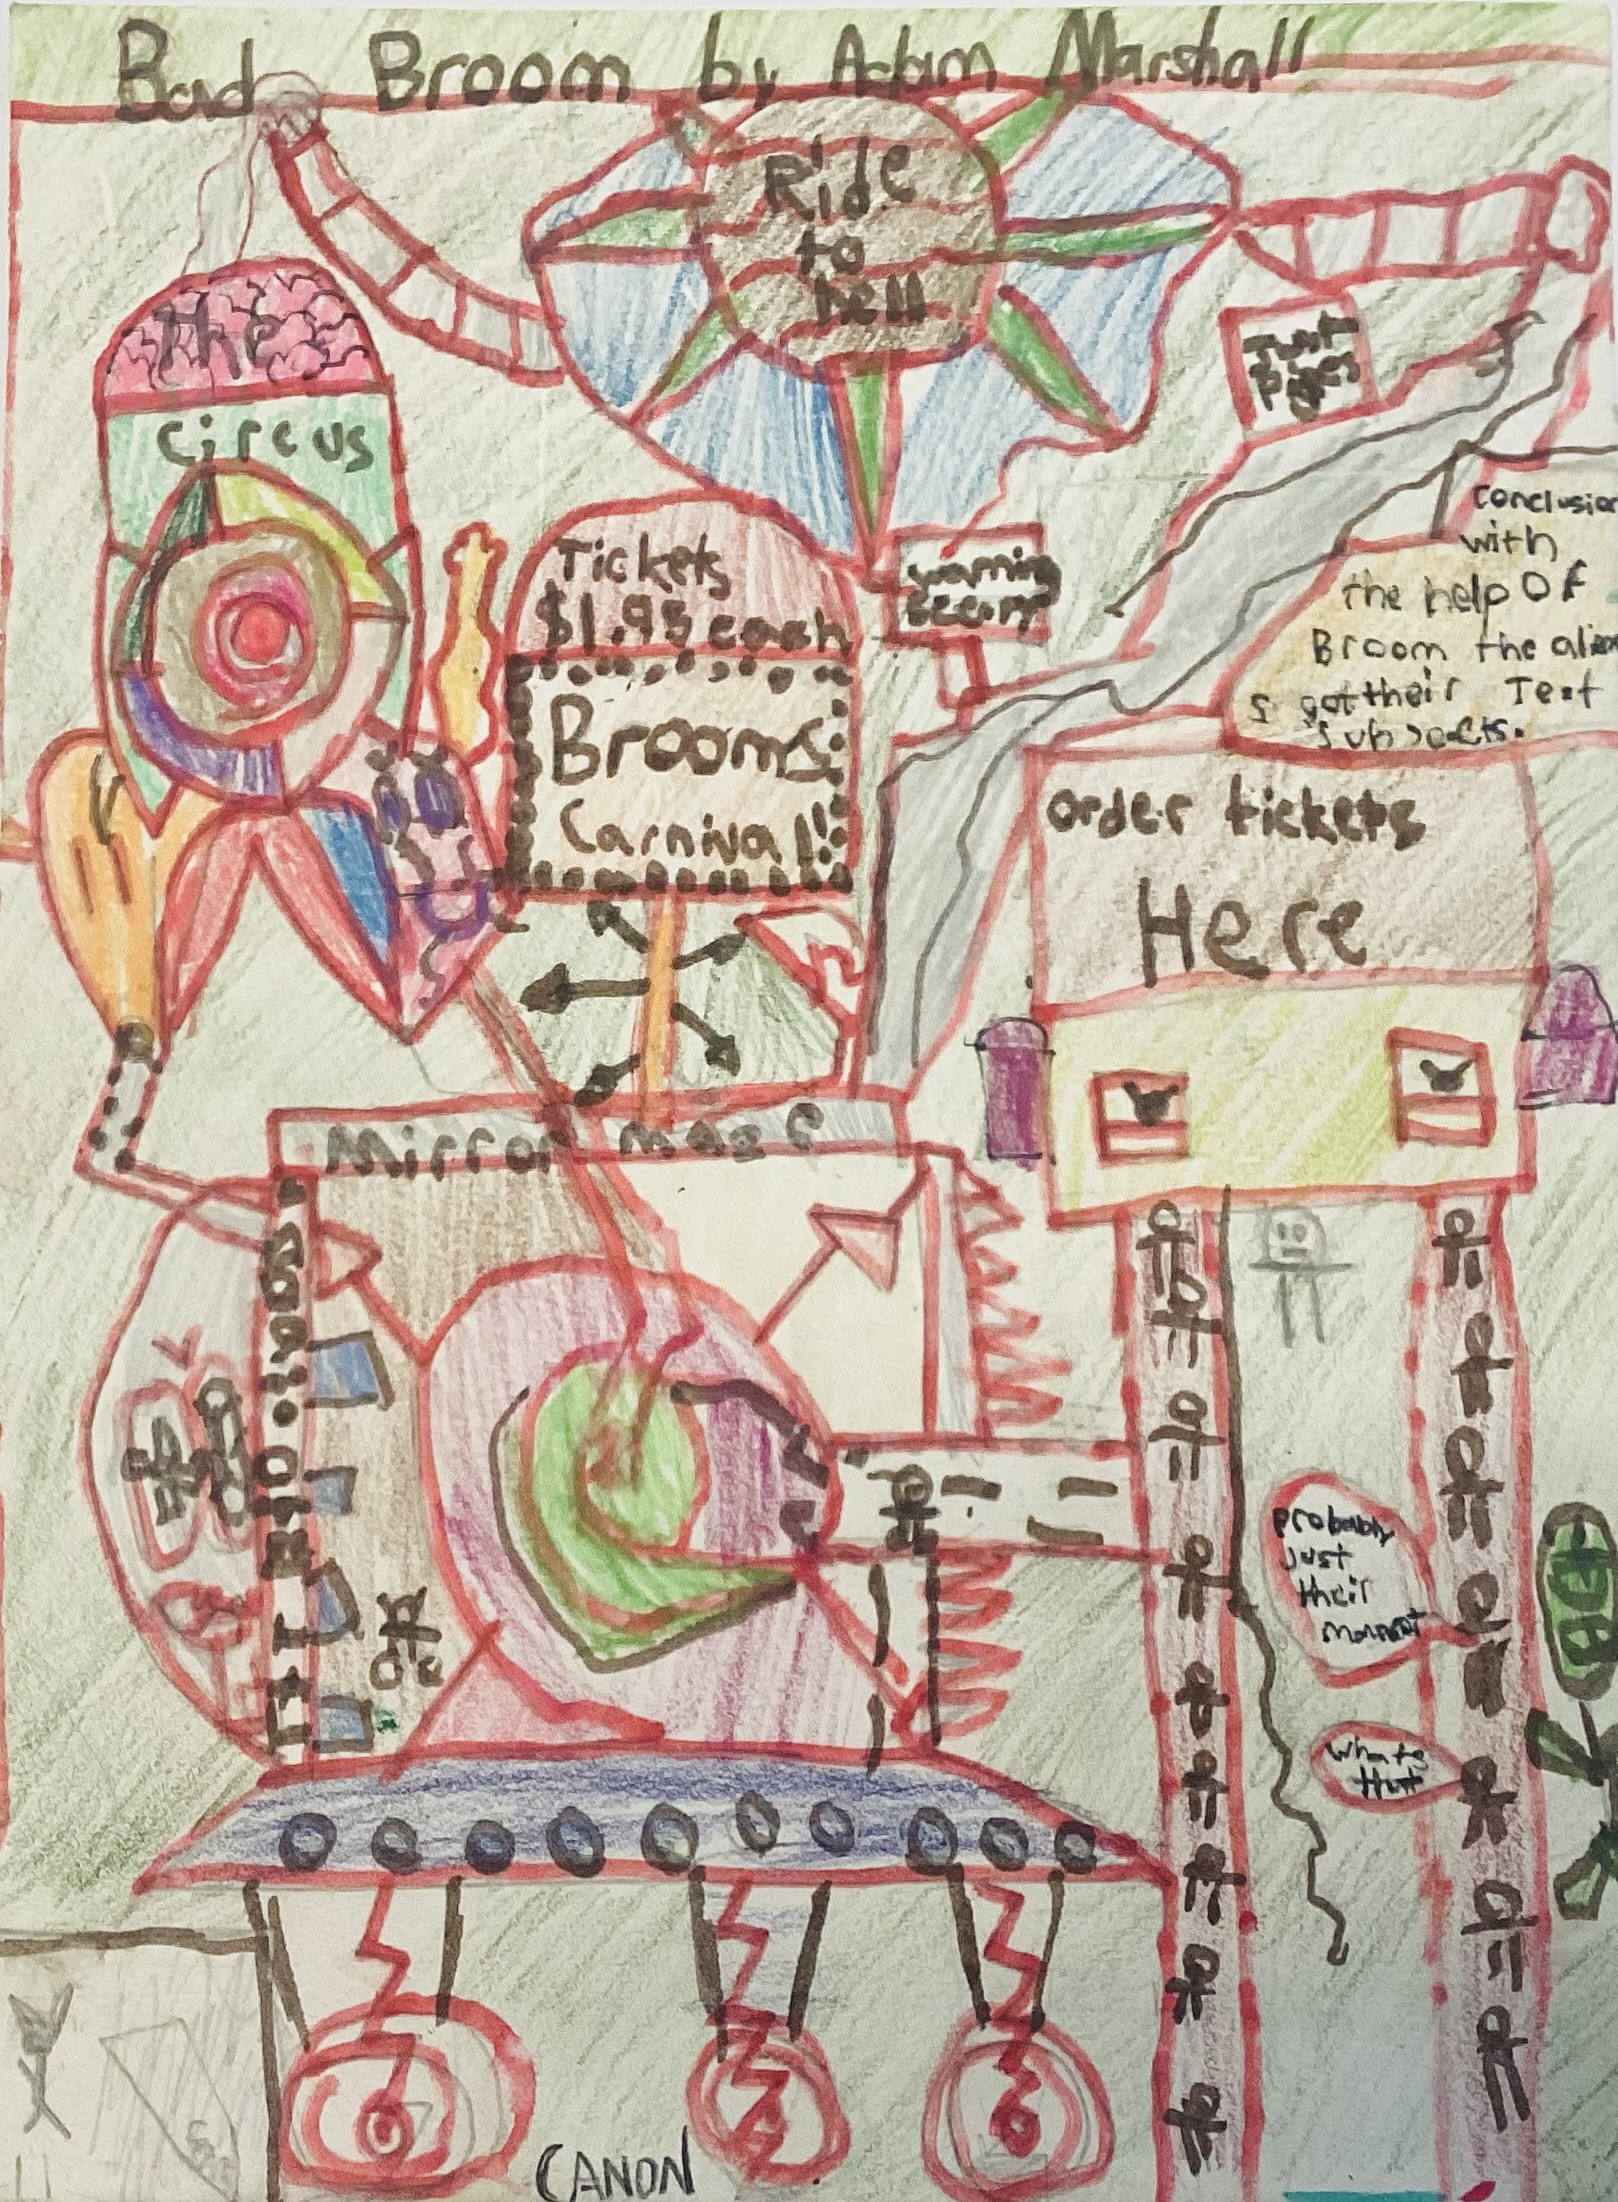 Bad Broom by Adam Marshall
Ride
to
hell
The
circus
Just
Tickets
$1.95 cash
Brooms
Carnival!
Conclusion
with
the help OF
Broom the alien
s got their Test
subjects.
Order tickets
Here
Mirror maze
Probably
Just
their
Whats
that
CANON